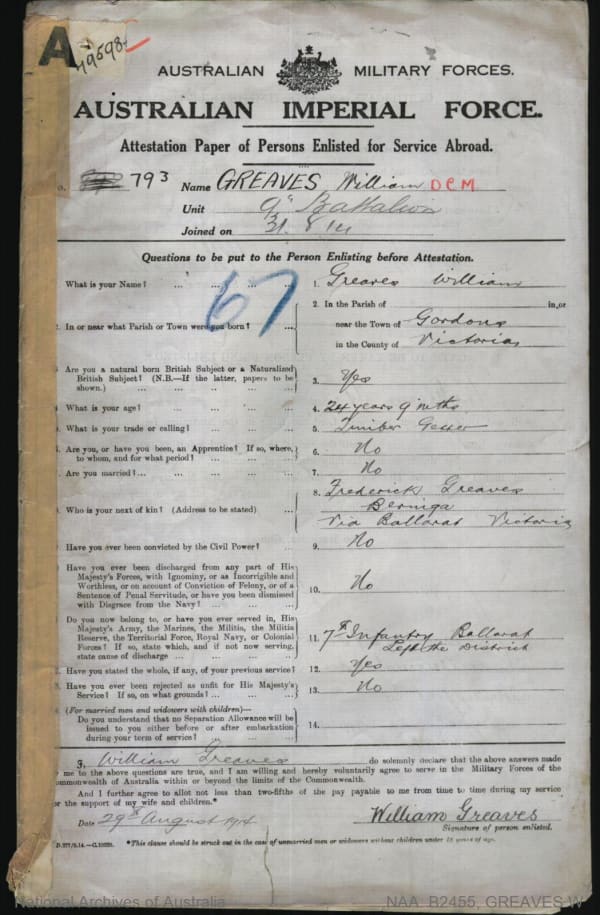 A
49598
AUSTRALIAN MILITARY FORCES.
AUSTRALIAN IMPERIAL FORCE.
Attestation Paper of Persons Enlisted for Service Abroad.
o. 793 Name GREAVES William DCM
Unit 9th Battalion
Joined on 31. 8 14
Questions to be put to the Person Enlisting before Attestation.
67
What is your Name? ... ... ... ... 1. Greaves William
2. In or near what Parish or Town were you born? ... 2. In the Parish of in, or
near the Town of Gordons
in the County of Victoria
Are you a natural born British Subject or a Naturalized
British Subject? (N.B.—If the latter, papers to be
shown.) ... ... ... ... 3. Yes
What is your age? ... ... ... ... 4. 24 years 9 mths
What is your trade or calling? ... ... ... 5. Timber Getter
Are you, or have you been, an Apprentice? If so, where,
to whom, and for what period? ... ... ... 6. No
Are you married? ... ... ... ... 7. No
Who is your next of kin? (Address to be stated) ... 8. Frederick Greaves
Via Ballarat Victoria
Have you ever been convicted by the Civil Power? ... 9. No
Have you ever been discharged from any part of His
Majesty's Forces, with Ignominy, or as Incorrigible and
Worthless, or on account of Conviction of Felony, or of a
Sentence of Penal Servitude, or have you been dismissed
with Disgrace from the Navy? ... ... ... 10. No
Do you now belong to, or have you ever served in, His
Majesty's Army, the Marines, the Militia, the Militia
Reserve, the Territorial Force, Royal Navy, or Colonial
Forces? If so, state which, and if not now serving,
state cause of discharge ... ... ... 11. 7th Infantry Ballarat
Left the District
Have you stated the whole, if any, of your previous service? 12. Yes
Have you ever been rejected as unfit for His Majesty's
Service? If so, on what grounds? ... ... ... 13. No
(For married men and widowers with children)—
Do you understand that no Separation Allowance will be
issued to you either before or after embarkation
during your term of service? ... ... 14.
I, William Greaves do solemnly declare that the above answers made
me to the above questions are true, and I am willing and hereby voluntarily agree to serve in the Military Forces of the
ommonwealth of Australia within or beyond the limits of the Commonwealth.
And I further agree to allot not less than two-fifths of the pay payable to me from time to time during my service
or the support of my wife and children.*
Date 29th August 1914. William Greaves
Signature of person enlisted.
*This clause should be struck out in the case of unmarried men or widowers without children under 18 years of age.
National Archives of Australia NAA: B2455, GREAVES W